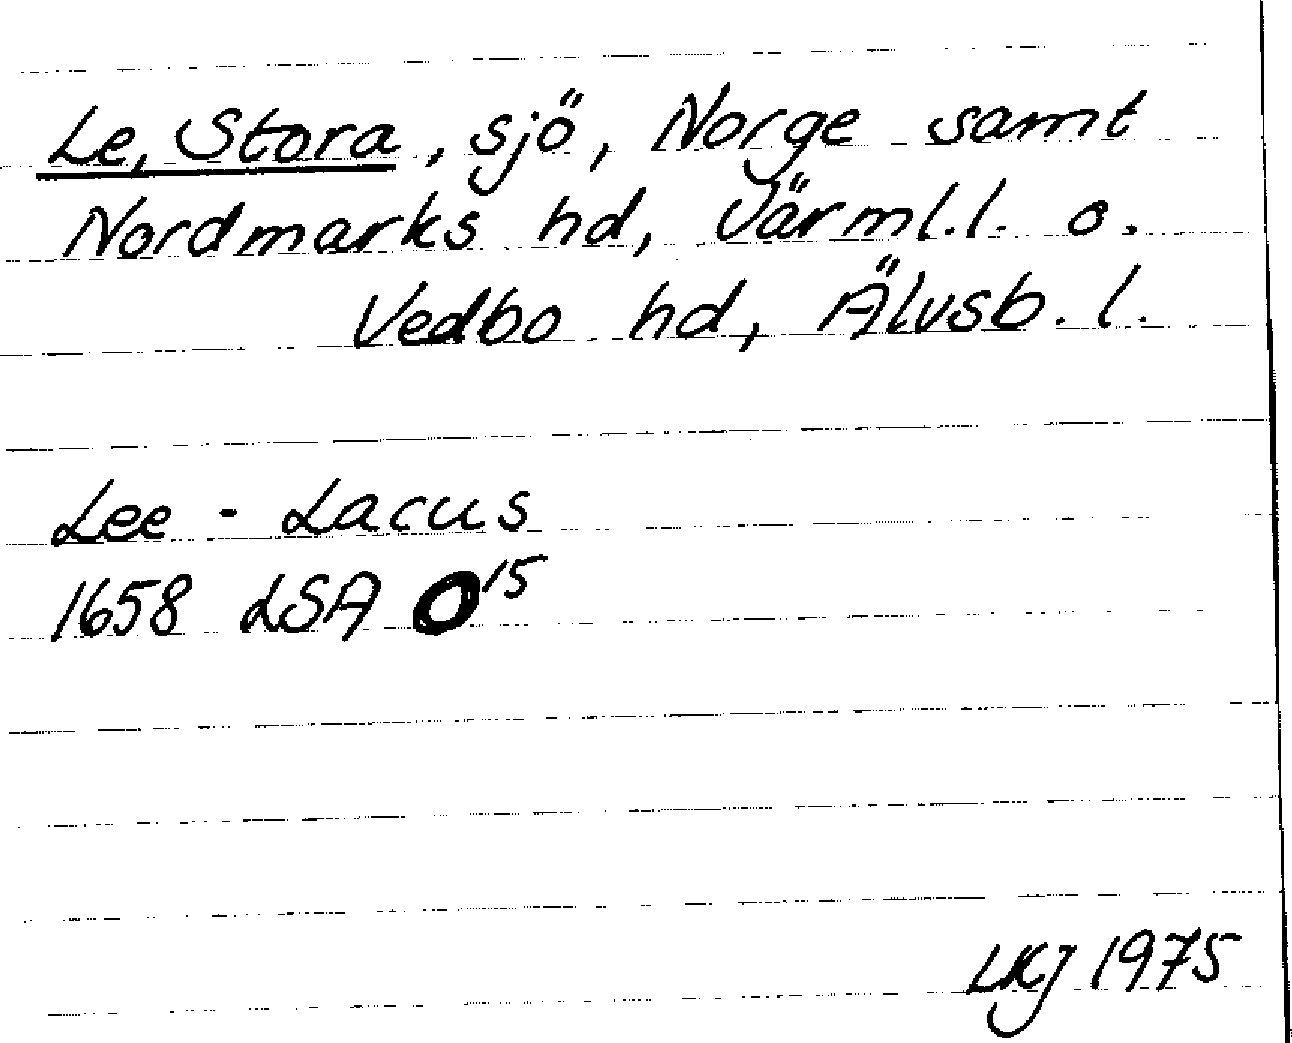 Le, Stora, sjö, Norge samt
Nordmarks hd, Värml.l. o.
Vedbo hd, Älvsb.l.
Lee - Lacus
1658 LSA O15
LKJ 1975